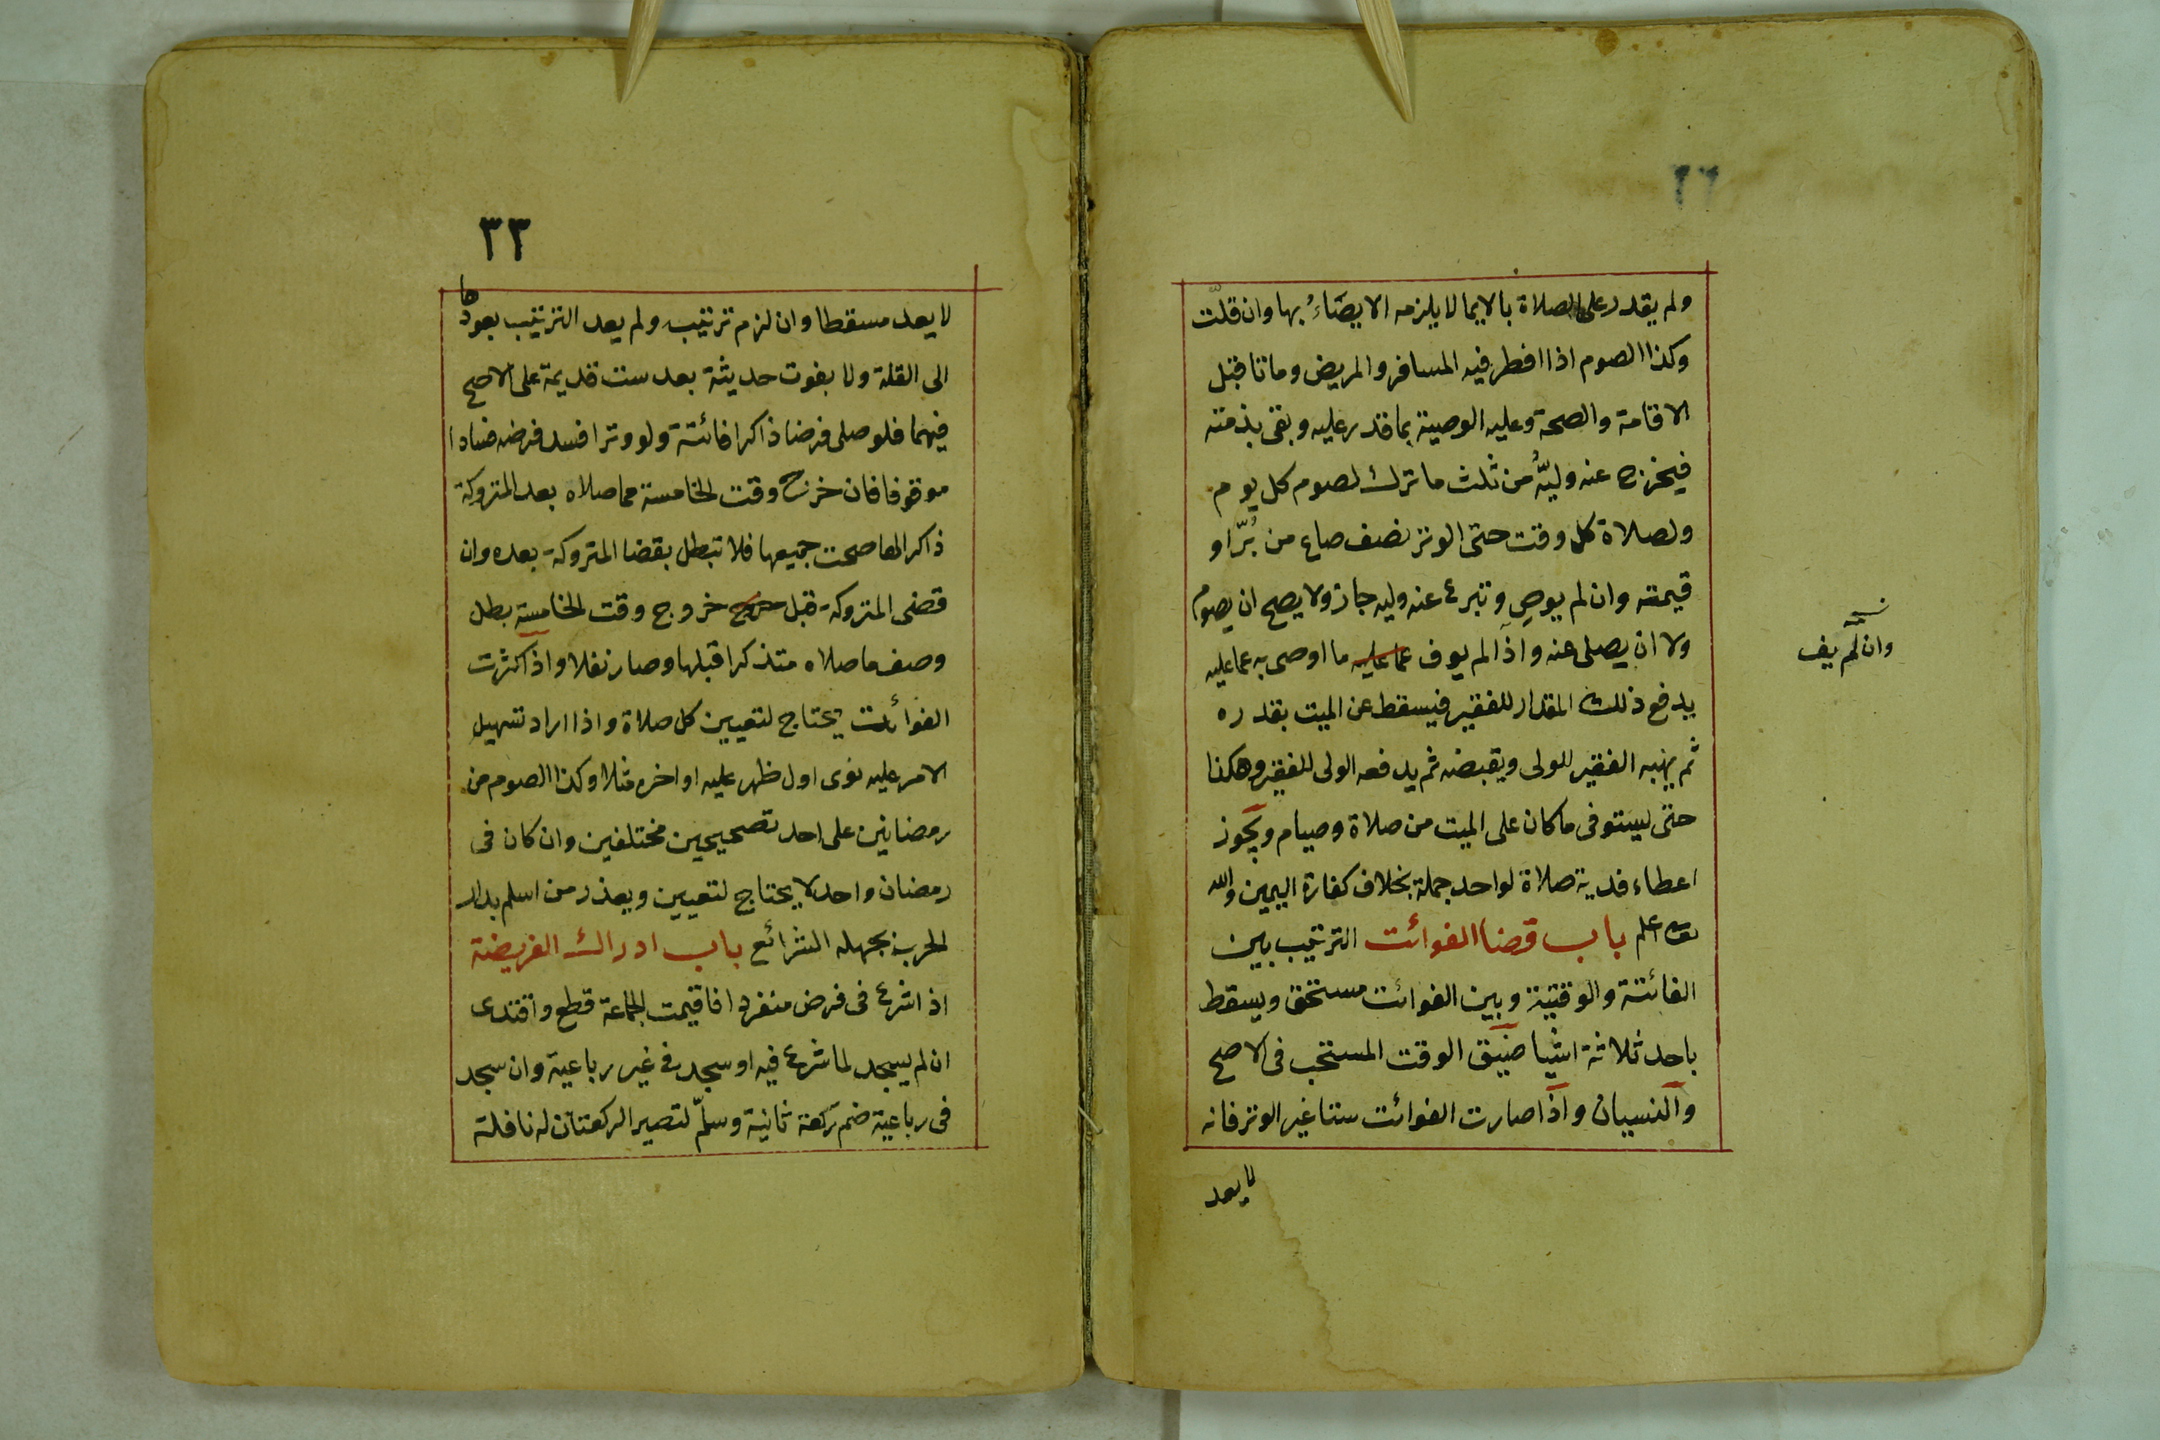 ولم يقدر على الصلاة بالايما لا يلزمه الايصاءُ بها وان قلّت
وكذا الصوم اذا افطر فيه المسافر والمريض وماتا قبل
الاقامة والصحة وعليه الوصية بما قدر عليه وبقى بذمته
فيخرج عنه وليّهُ من ثلث ما ترك لصوم كل يوم
ولصلاة كل وقت حتى الوتر نصف صاع من بُرّ او
قيمته وان لم يوصِ وتبرع عنه وليه جاز ولا يصح ان يصوم
ولا ان يصلى عنه واذا لم يوف عما عليه ما اوصى به عما عليه
وان لم يف
يدفع ذلك المقدار للفقير فيسقط عن الميت بقدره
ثم يهبه الفقير للولى ويقبضه ثم يدفعه الولى للفقير وهكذا
حتى يستوفى ما كان على الميت من صلاة وصيام ويجوز
اعطاء فدية صلاة لواحد جملة بخلاف كفارة اليمين والله
اعلم باب قضا الفوائت الترتيب بين
الفائتة والوقتية وبين الفوائت مستحق ويسقط
باحد ثلاثة اشيا ضيق الوقت المستحب فى الاصح
والنسيان واذا صارت الفوائت ستا غير الوتر فانه
لا يعد
٣٣
لا يعد مسقطا وان لزم ترتيبه ولم يعد الترتيب بعودها
الى القلة ولا بفوت حديثة بعد ست قديمة على الاصح
فيهما فلو صلى فرضا ذاكرا فائتة ولو وترا فسد فرضه فسادا
موقوفا فان خرج وقت الخامسة مما صلاه بعد المتروكة
ذاكرا لها صحت جميعها فلا تبطل بقضا المتروكة بعده وان
قضى المتروكة قبل خروج وقت الخامسة بطل
وصف ما صلاه متذكرا قبلها وصار نفلا واذا كثرت
الفوائت يحتاج لتعيين كل صلاة واذا اراد تسهيل
الامر عليه نوى اول ظهر عليه او اخره مثلا وكذا الصوم من
رمضانين على احد تصحيحين مختلفين وان كان فى
رمضان واحد لا يحتاج لتعيين ويعذر من اسلم بدار
الحرب بجهله الشرائع باب ادراك الفريضة
اذا شرع فى فرض منفردا فاقيمت الجماعة قطع واقتدى
ان لم يسجد لما شرع فيه او سجد فى غير رباعية وان سجد
فى رباعية ضم ركعة ثانية وسلّم لتصير الركعتان له نافلة